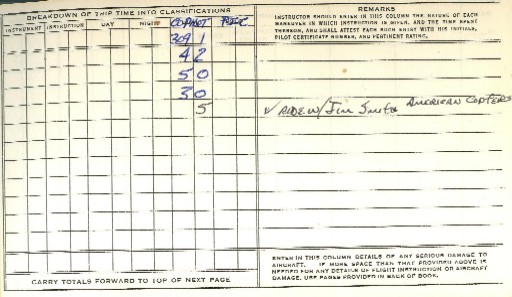 BREAKDOWN OF THIS TIME INTO CLASSIFICATIONS
INSTRUMENT INSTRUCTION DAY NIGHT COPILOT
309 1
4 2
5 0
3 0
5
REMARKS
INSTRUCTOR SHOULD ENTER IN THIS COLUMN THE NATURE OF EACH
MANEUVER IN WHICH INSTRUCTION IS GIVEN, AND THE TIME SPENT
THEREON, AND SHALL ATTEST EACH SUCH ENTRY WITH HIS INITIALS,
PILOT CERTIFICATE NUMBER, AND PERTINENT RATING.
RIDE W/ Jim Smith AMERICAN COPTERS
ENTER IN THIS COLUMN DETAILS OF ANY SERIOUS DAMAGE TO
AIRCRAFT. IF MORE SPACE THAN THAT PROVIDED ABOVE IS
NEEDED FOR ANY DETAILS OF FLIGHT INSTRUCTION OR AIRCRAFT
DAMAGE, USE PAGES PROVIDED IN BACK OF BOOK.
CARRY TOTALS FORWARD TO TOP OF NEXT PAGE